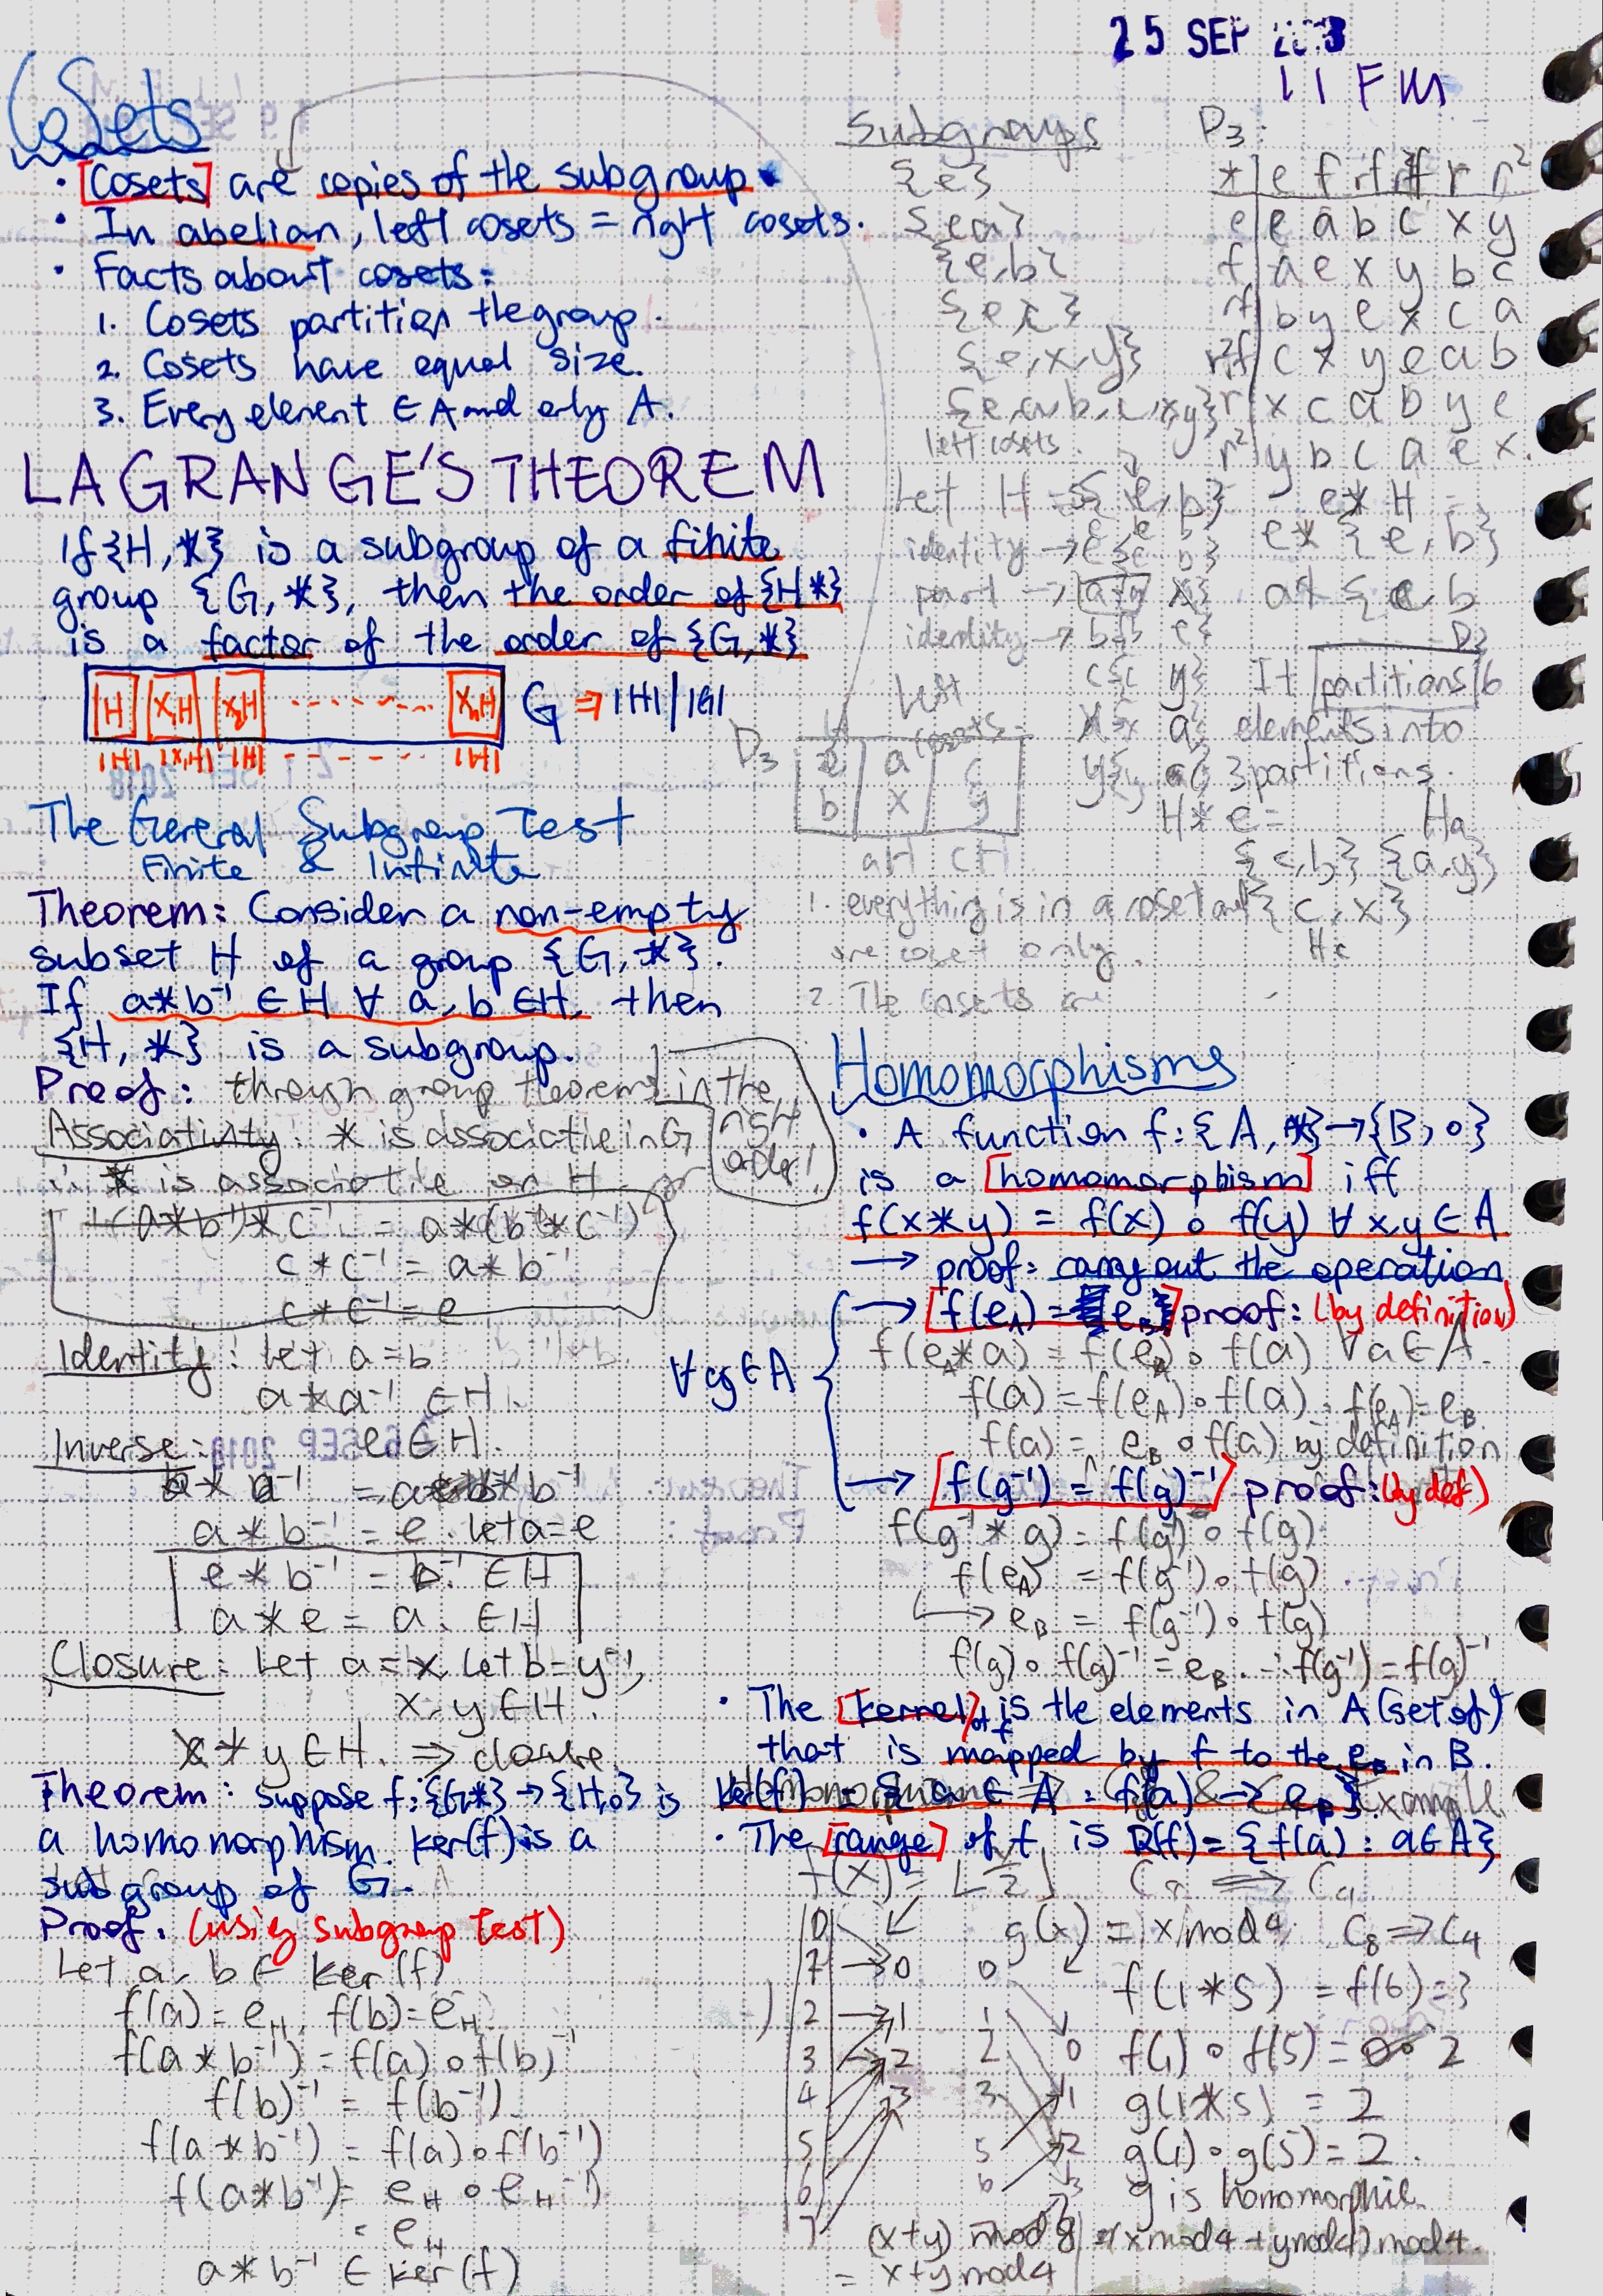 25 SEP
11 FM
Cosets
• Cosets are copies of the subgroup.
• In abelian, left cosets = right cosets.
• Facts about cosets:
1. Cosets partition the group.
2. Cosets have equal size.
3. Every element ∈ A and only A.
LAGRANGE'S THEOREM
If {H, *} is a subgroup of a finite
group {G, *}, then the order of {H *}
is a factor of the order of {G, *}
H x₁H x₂H ------- xₙH G ⇒ |H| / |G|
|H| |x₁H| |H| ------ |H|
The General Subgroup Test
Finite & Infinite
Theorem: Consider a non-empty
subset H of a group {G, *}.
If a*b⁻¹ ∈ H ∀ a, b ∈ H, then
{H, *} is a subgroup.
Proof: through group theorems in the
right
order!
Associativity: * is associatie in G
∴ * is associatile on H.
(a*b⁻¹)*c⁻¹ = a*(b⁻¹*c⁻¹)
c*c⁻¹ = a*b⁻¹
c*c⁻¹ = e
Identity: Let a=b
a*a⁻¹ ∈ H.
e ∈ H.
Inverse:
a*b⁻¹ = e. let a=e
e*b⁻¹ = b⁻¹ ∈ H
a*e = a. ∈ H
Closure: Let a=x, let b=y⁻¹,
x, y ∈ H.
x*y ∈ H. ⇒ closure.
Theorem: Suppose f: {G*} → {H,∘} is
a homomorphism. ker(f) is a
subgroup of G.
Proof. (using subgroup test)
Let a, b ∈ ker(f)
f(a) = e_H, f(b) = e_H.
f(a*b⁻¹) = f(a)∘f(b)⁻¹
f(b)⁻¹ = f(b⁻¹).
f(a*b⁻¹) = f(a)∘f(b⁻¹)
f(a*b⁻¹) = e_H ∘ e_H⁻¹
= e_H
a*b⁻¹ ∈ ker(f)
Subgroups
{e}
{e a}
{e, b}
{e, c}
{e, x, y}
{e, a, b, c, x, y}
D₃:
* e f rf r²f r r²
e e a b c x y
f a e x y b c
rf b y e x c a
r²f c x y e a b
r x c a b y e
r² y b c a e x.
left cosets.
Let H = {e, b}
e * H =
e * {e, b}
identity →
part →
identity →
a * {e, b
D₃
It partitions 6
elements into
3 partitions.
Left
cosets
D₃
e a c
b x y
aH cH
H * e = Ha
{e, b} {a, y}
{c, x}
Hc
1. everything is in a coset and
one coset only.
2. The cosets are
Homomorphisms
• A function f: {A, *} → {B, ∘}
is a homomorphism iff
f(x*y) = f(x) ∘ f(y) ∀ x, y ∈ A
→ proof: carry out the operation
∀ g ∈ A
→ f(e_A) = e_B proof: (by definition)
f(e_A*a) = f(e_A) ∘ f(a) ∀ a ∈ A.
f(a) = f(e_A) ∘ f(a). f(e_A) = e_B
f(a) = e_B ∘ f(a) by definition
→ f(g⁻¹) = f(g)⁻¹ proof: (by def)
f(g⁻¹ * g) = f(g⁻¹) ∘ f(g)
f(e_A) = f(g⁻¹) ∘ f(g)
→ e_B = f(g⁻¹) ∘ f(g)
f(g) ∘ f(g)⁻¹ = e_B. ∴ f(g⁻¹) = f(g)⁻¹
• The kernel of f is the elements in A (set of)
that is mapped by f to the e_B in B.
ker(f) = {a ∈ A : f(a) → e_B}.
Example.
• The range of f is R(f) = {f(a) : a ∈ A}
f(x) = ⌊x/2⌋
g(x) = x mod 4 C₈ ⇒ C₄
f(1*5) = f(6) = 3
f(1) ∘ f(5) = 2
g(1*5) = 2
g(1) ∘ g(5) = 2.
g is homomorphic.
(x+y) mod 8 = (x mod 4 + y mod 4) mod 4.
= x+y mod 4